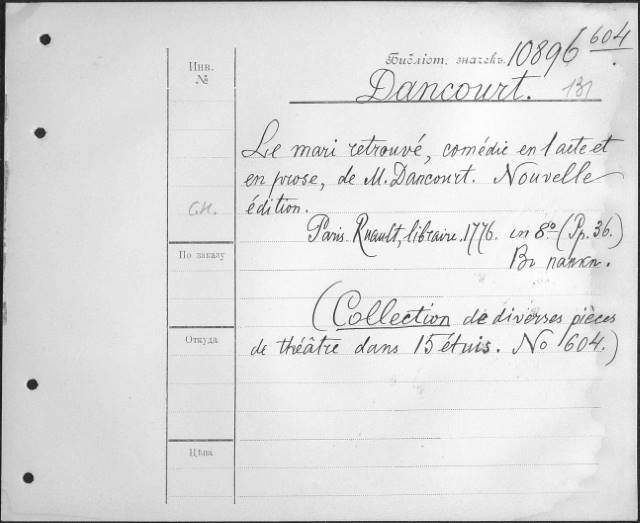 Инв.
№
Библіот. значекъ. 10896 604
Dancourt. 131
Le mari retrouvé, comédie en 1 acte et
en prose, de M. Dancourt. Nouvelle
édition.
С.Н.
Paris. Ruault, libraire. 1776. in 8º (Pp. 36.)
Въ папкѣ.
По заказу
(Collection de diverses pièces
de théâtre dans 15 étuis. No 604.)
Откуда
Цѣна